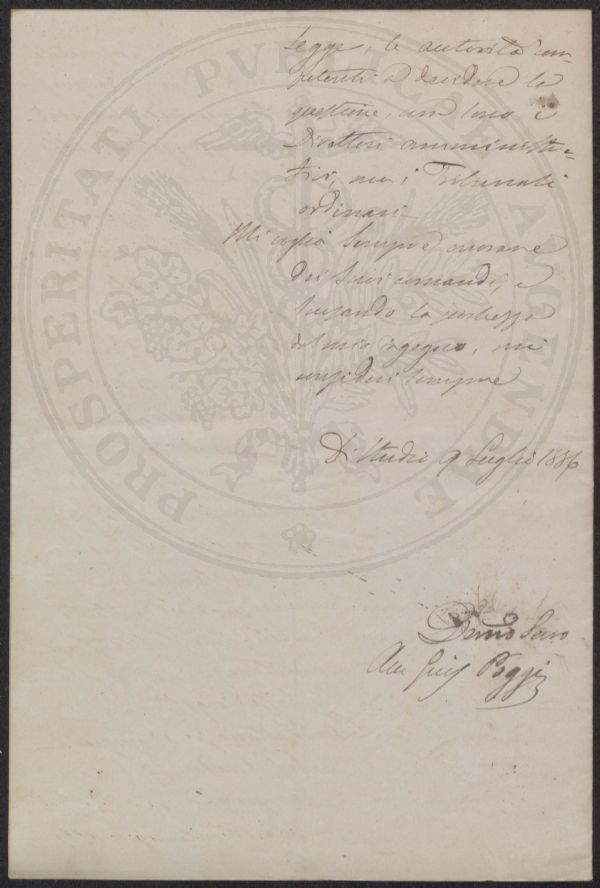 Legge, le autorità com-
petenti a decidere la
questione, non sono i
Direttori amministra-
tivi, ma i Tribunali
ordinari
Mi voglia sempre onorare
dei Suoi comandi, e
scusando la pochezza
del mio ingegno, mi
consideri sempre
Di Studio 9 Luglio 1886
Devmo Servo
Avv Gius Poggi
PROSPERITATI PVBLICAE AVGENDAE